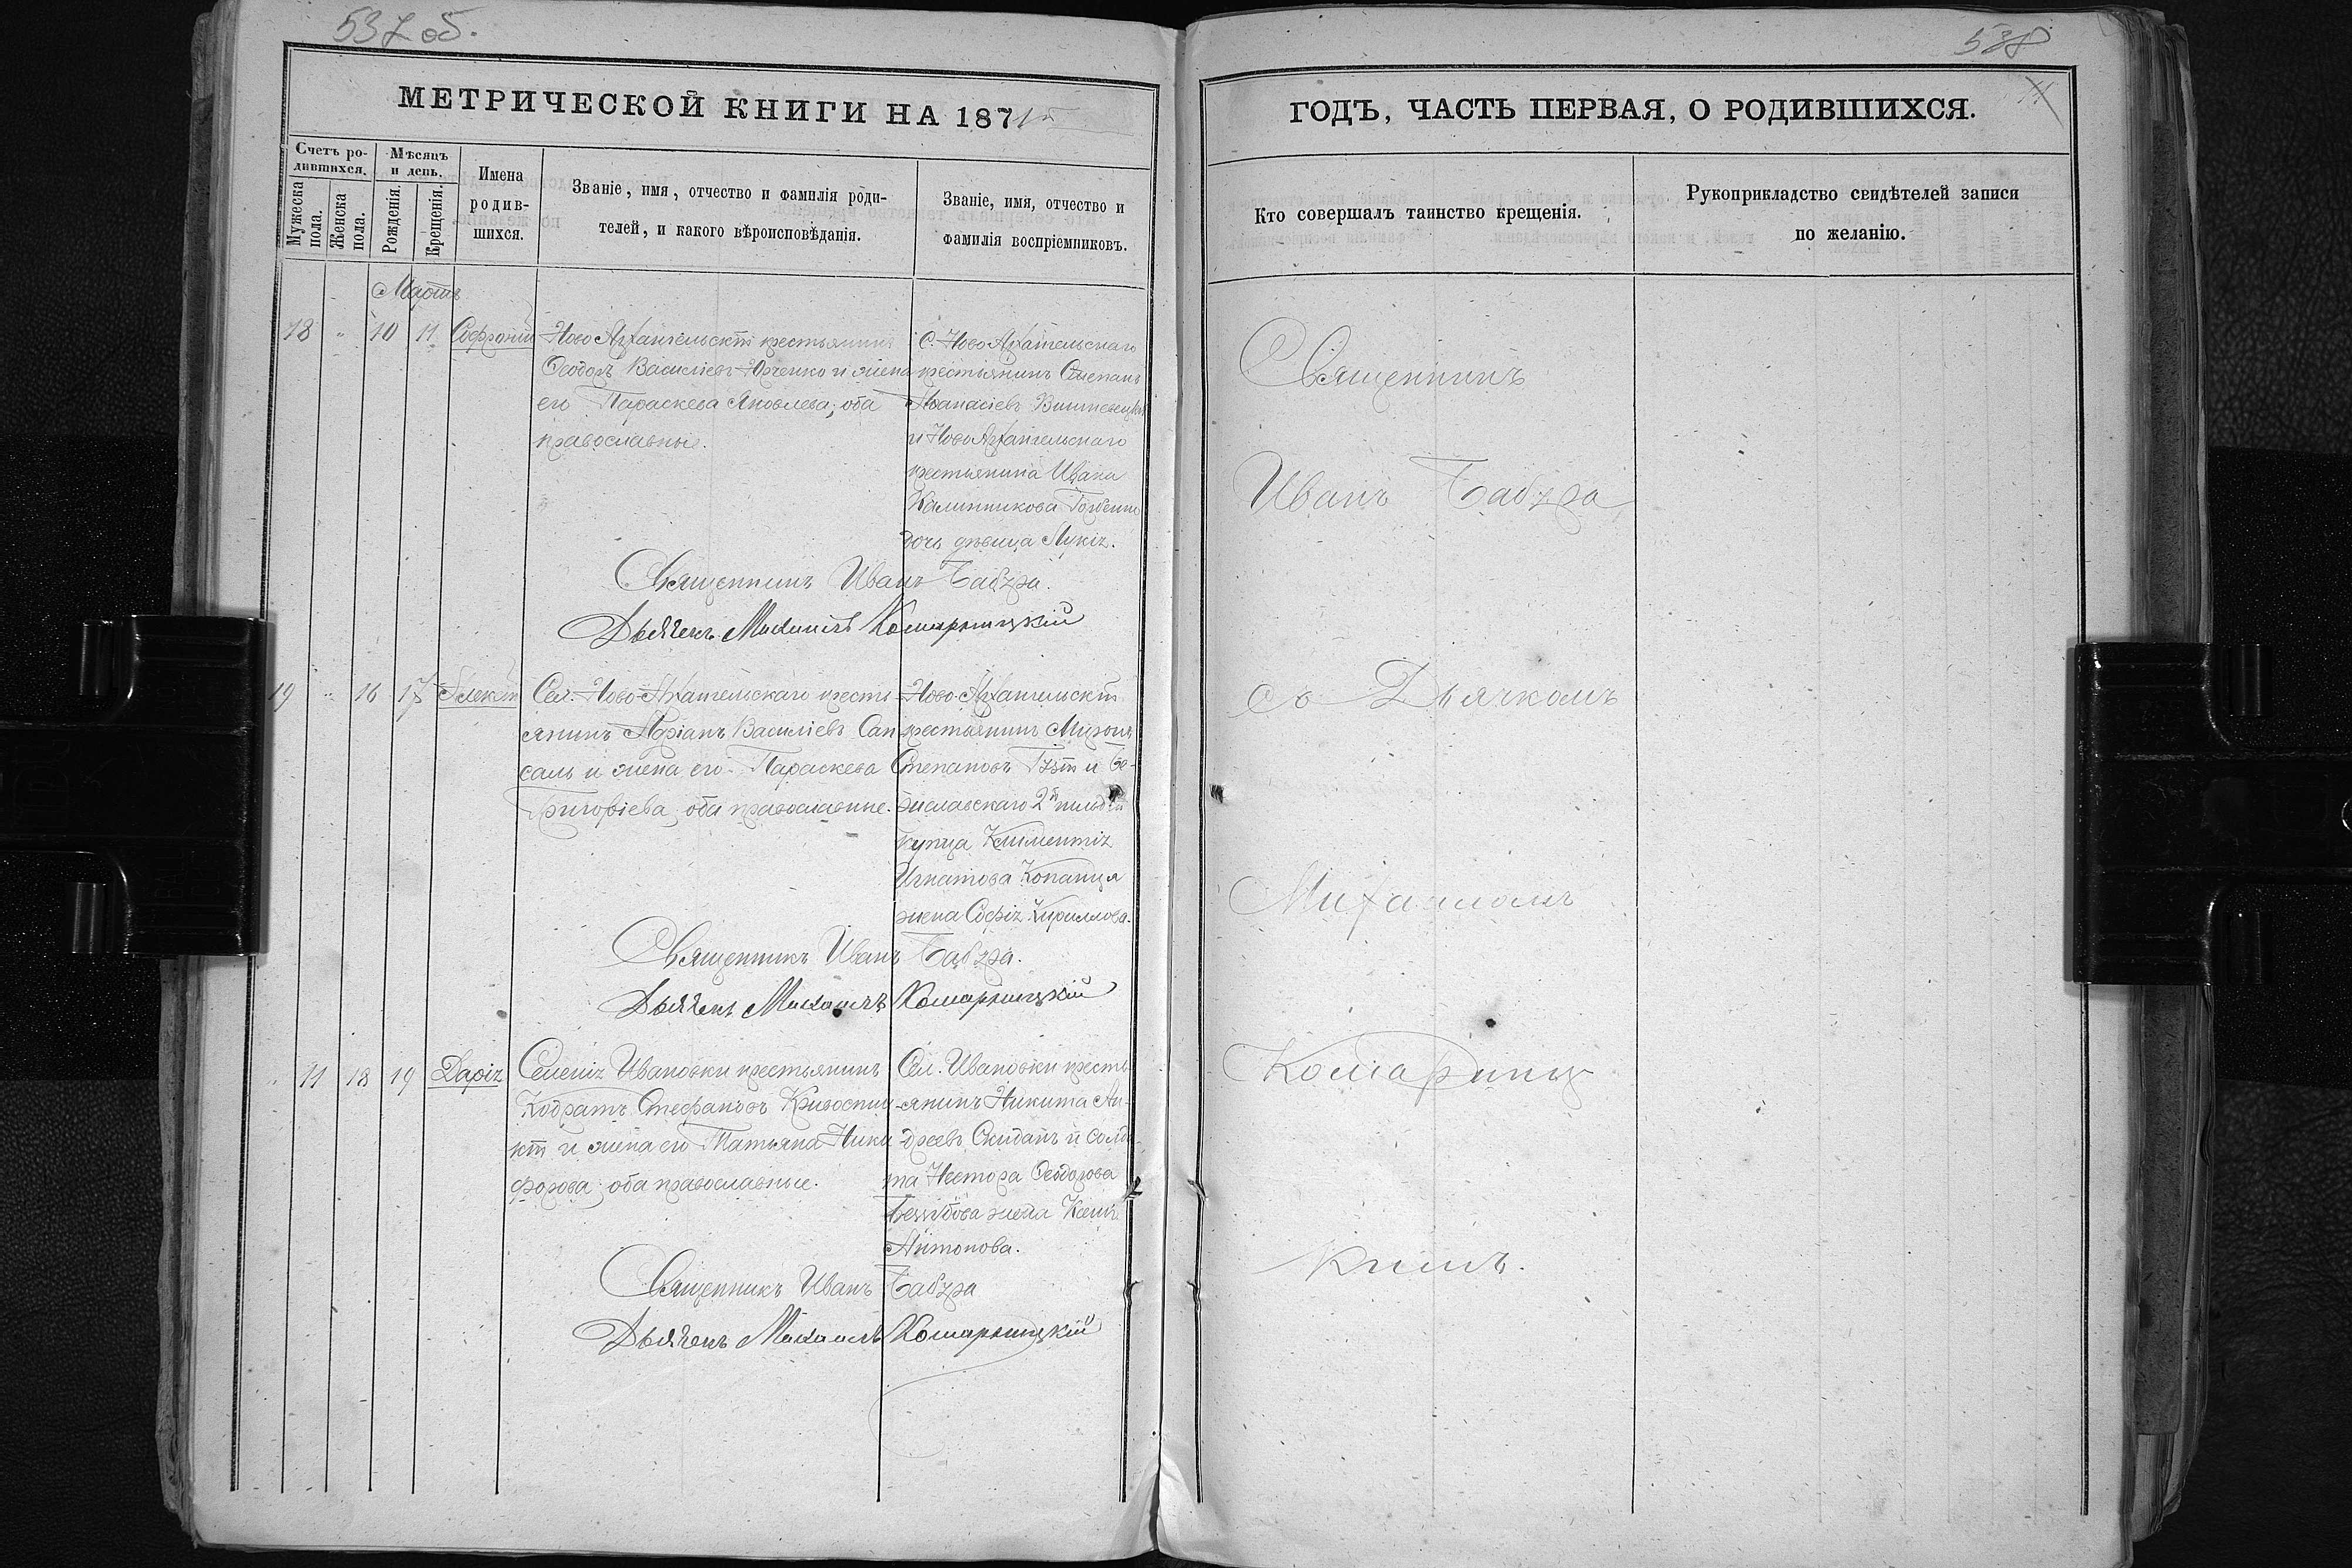 537 об.
МЕТРИЧЕСКОЙ КНИГИ НА 1871й
Счетъ родившихся.
Мужеска пола.
Женска пола.
Мѣсяцъ и день.
Рожденія.
Крещенія.
Имена родившихся.
Званіе, имя, отчество и фамилія родителей, и какого вѣроисповѣданія.
Званіе, имя, отчество и фамилія воспріемниковъ.
Мартъ
18 " 10 11 Софроній
Ново Архангельскій крестьянинъ
Ѳеодоръ Василіевъ Юрченко и жена
его Параскева Яковлева; оба
православные.
С. Ново Архангельскаго
крестьянинъ Степанъ
Аѳанасіевъ
и Ново Архангельскаго
крестьянина Ивана
Калинникова
дочь дѣвица Лукія.
Священникъ Иванъ Бабура.
Дьячекъ Михаилъ Комарницкій
19 " 16 17
Сел. Ново-Архангельскаго кресть
янинъ Адріанъ Василіевъ Сап
саль и жена его Параскева
Григоріева, оба православные.
Ново-Архангельскій
крестьянинъ Миронъ
Степановъ Гузій и Бе-
риславскаго 2й гильдіи
купца Климентія
Игнатова Копанця
жена Софія Кириллова.
Священникъ Иванъ Бабура.
Дьячекъ Михаилъ Комарницкій
" 11 18 19 Дарія
Селенія Ивановки крестьянинъ
Кодратъ Стефановъ
и жена его Татьяна Ники
форова; оба православные.
Сел. Ивановки кресть
янинъ Никита Ан-
дреевъ Скиданъ и солда-
та Нестора Ѳеодорова
жена
Антонова.
Священникъ Иванъ Бабура
Дьячекъ Михаилъ Комарницкій
538
11
ГОДЪ, ЧАСТЬ ПЕРВАЯ, О РОДИВШИХСЯ.
Кто совершалъ таинство крещенія.
Рукоприкладство свидѣтелей записи
по желанію.
Священникъ
Иванъ Бабура
съ Дьячкомъ
Михаиломъ
Комарниц
кимъ.